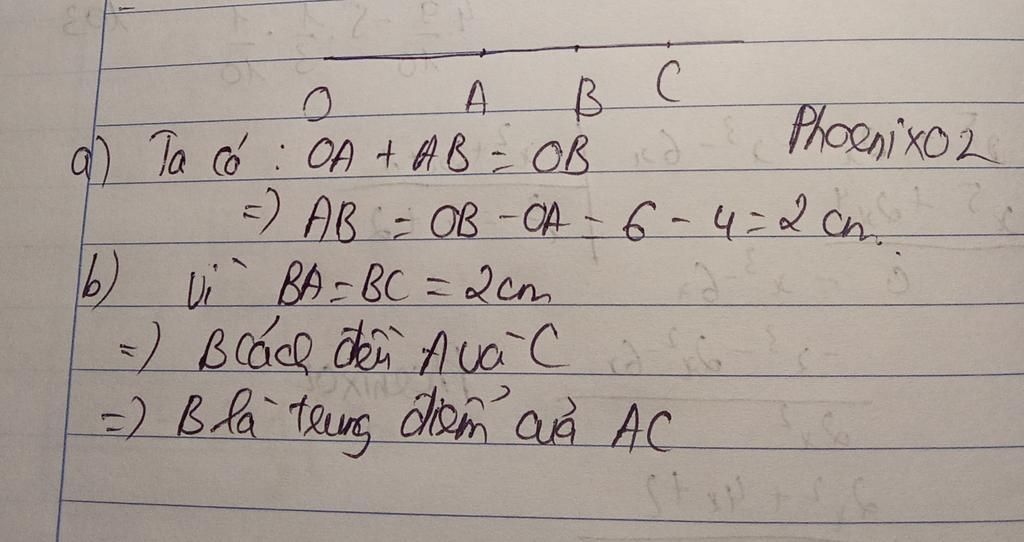 O A B C
PhoenixO2
a) Ta có : OA + AB = OB
=) AB = OB - OA = 6 - 4 = 2 cm.
b) Vì BA = BC = 2cm
=) B cách đều A và C
=) B là trung điểm của AC